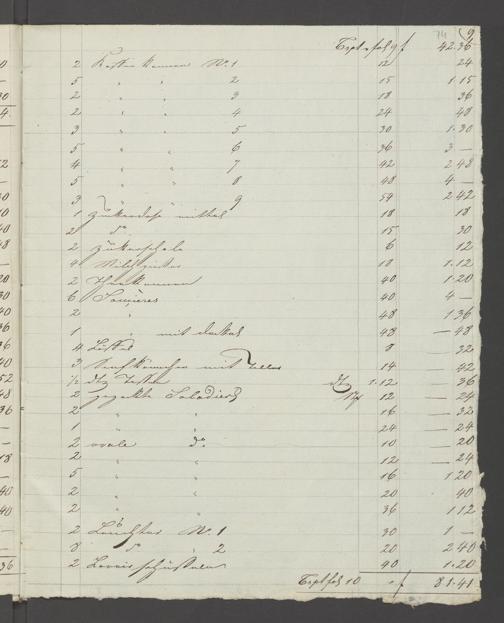 74 9
Trpt. fol 9 f 42.36
2 Kaffee kannen No. 1 12 24
5 " " 2 15 1.15
2 " " 3 18 36
2 " " 4 24 48
3 " " 5 30 1.30
5 " " 6 36 3 —
4 " " 7 42 2 48
5 " " 8 48 4 —
3 " " 9 54 2 42
1 Zukerdose mittel 18 18
2 do 15 30
2 Zukerschale 6 12
4 Milchgieser 18 1.12
2 Theekannen 40 1.20
6 40 4 —
2 " 48 1.36
1 " mit dekel 48 — 48
4 8 32
3 mit Teller 14 42
½ dtz Tassen dtz 1.12 36
2 Saladiers 12 — 24
2 " " 16 — 32
1 " " 24 — 24
2 ovale do 10 — 20
2 " " 12 — 24
5 " " 16 1 20
2 " " 20 40
2 " " 36 1 12
2 Leuchter No. 1 30 1 —
8 " 2 20 2 40
2 schüsseln 40 1.20
Trpt fol 10 f 81.41